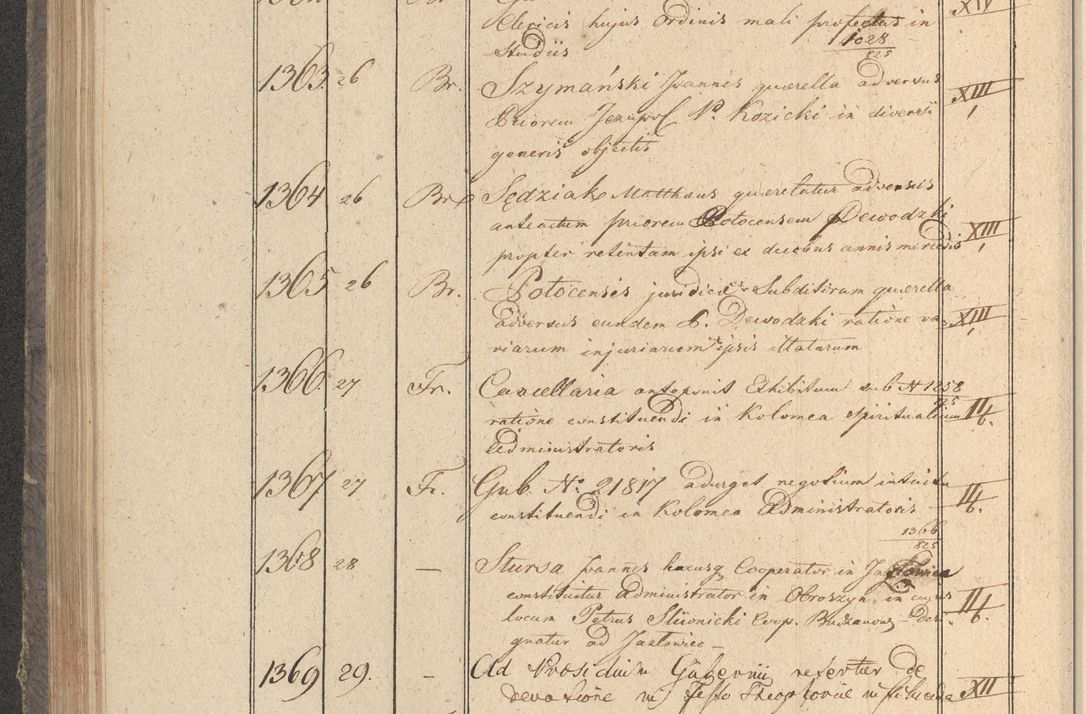 Clericis hujus Ordinis mali profectus in XIV
Studiis 1028/825
1363. 26 Br. Szymański Joannis querella adversus XIII
Priorem P. Kozicki in diversi 1
generis objectis
1364 26 Br. Sędziak Matthaus querelatur adversus
anteactum priorem Potocensem Dewodzki XIII
propter retentam ipsi ex duobus annis mercedis 1
1365 26 Br. Potocensis juridicae Subditorum querella
adversus eundem P. Dewodzki ratione va- XIII
riarum injuriarum ipsis illatarum 1
1366. 27 Fr. Cancellaria anteponit Exhibitum sub N 1258/825
ratione constituendi in Kolomea Spiritualium II/6.
Administratoris
1367 27 Fr. Gub. No. 21817 adurget negotium intuitu
constituendi in Kolomea Administratoris II/6.
1366/825
1368 28 — Stursa Joannes hucusq Cooperator in Jazlowice
constituitur Administrator in Obroszyn, in cujus II/6.
locum Petrus Coop. desi
gnatur ad Jazlowice —
1369 29. — Ad Praesidium Gubernii refertur de XII
devotione in Festo